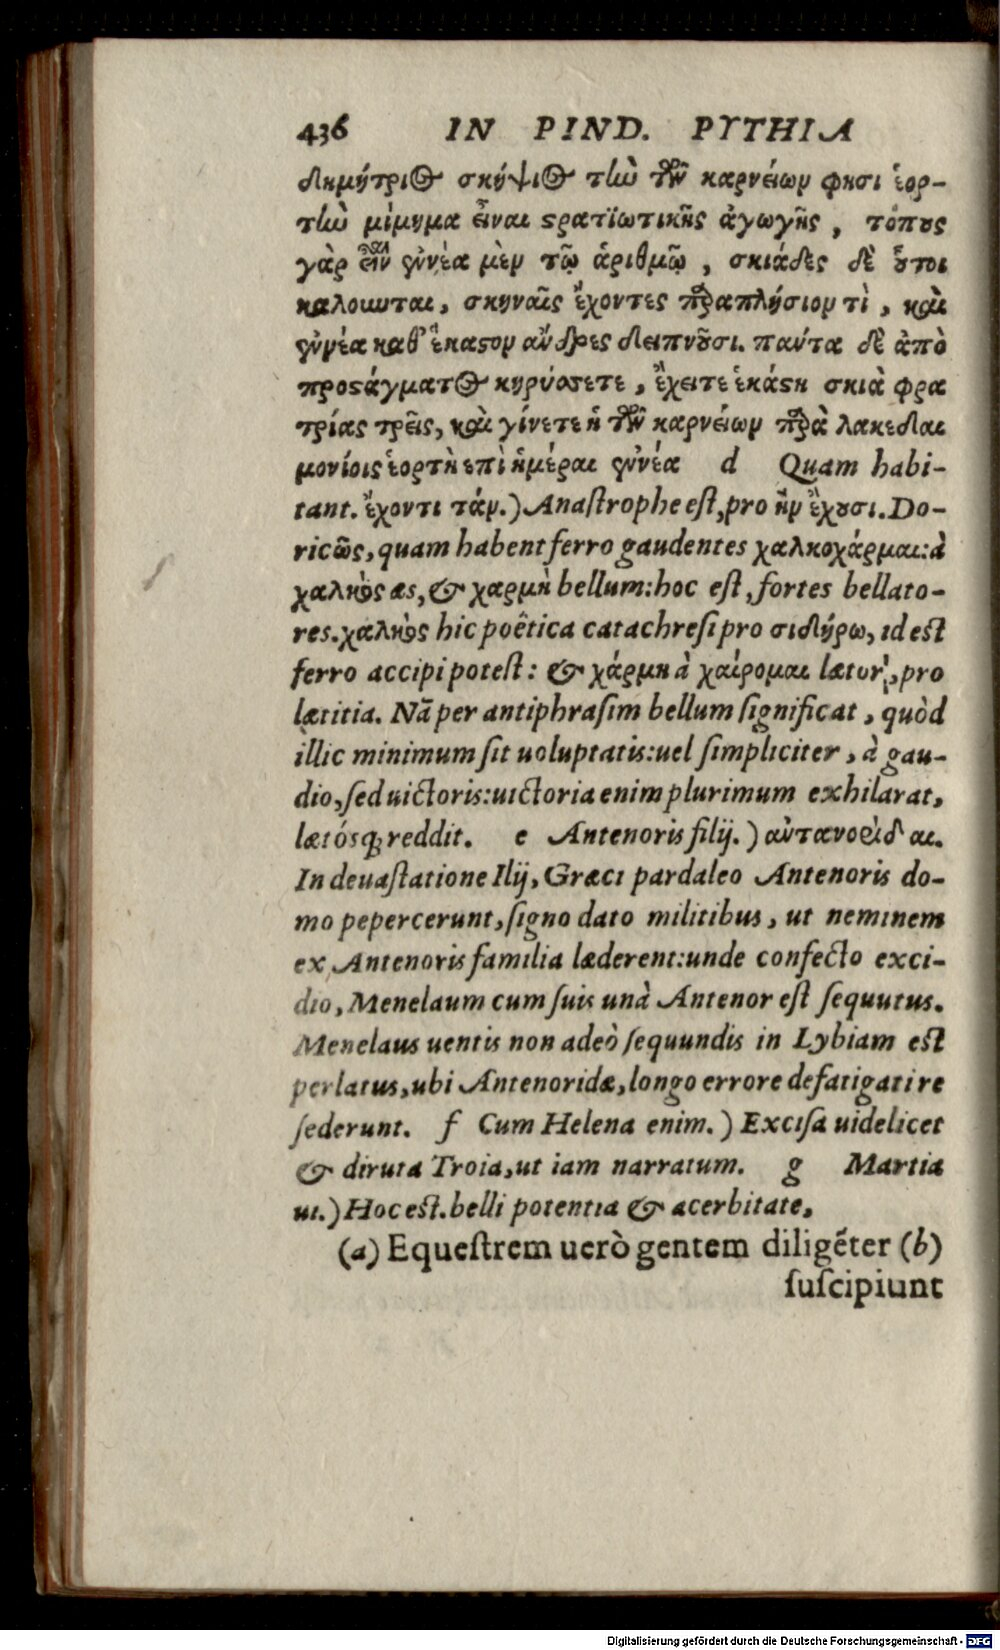 436 IN PIND. PYTHIA
δημήτριος σκήψιος τὼ τῶν καρνείων φησι ἑορ-
τὼ μίμημα εἶναι στρατϊωτικῆς ἀγωγῆς, τόπους
γὰρ εἶναι ἐννέα μὲν τῷ ἀριθμῷ, σκιάδες δὲ οὗτοι
καλοιωται, σκηναῖς ἔχοντες παραπλήσιον τὶ, καὶ
ἐννέα καθ' ἕκαστον ἄνδρες δειπνοῦσι. πάντα δὲ ἀπὸ
προστάγματος κηρύσσετε, ἔχειτε ἑκάστη σκιὰ φρα
τρίας τρεῖς, καὶ γίνετε ἡ τῶν καρνείων παρὰ λακεδαι
μονίοις ἑορτὴ επὶ ἡμέραι ἐννέα d Quam habi-
tant. ἔχοντι τάν.) Anaſtrophe eſt, pro ἣν ἔχουσι. Do-
ricῶς, quam habent ferro gaudentes χαλκοχάρμαι: à
χαλκὸς æs, & χαρμὴ bellum: hoc eſt, fortes bellato-
res. χαλκὸς hic poêtica catachreſi pro σιδήρω, id eſt
ferro accipi poteſt: & χάρμη à χαίρομαι lætor, pro
lætitia. Nã per antiphraſim bellum ſignificat, quòd
illic minimum ſit uoluptatis: uel ſimpliciter, à gau-
dio, ſed uictoris: uictoria enim plurimum exhilarat,
lætósq; reddit. e Antenoris filij.) αὐτανορίδ αι.
In deuaſtatione Ilij, Græci pardaleo Antenoris do-
mo pepercerunt, ſigno dato militibus, ut neminem
ex Antenoris familia læderent: unde confecto exci-
dio, Menelaum cum ſuis unà Antenor eſt ſequutus.
Menelaus uentis non adeò ſequundis in Lybiam eſt
perlatus, ubi Antenoridæ, longo errore defatigati re
ſederunt. f Cum Helena enim.) Exciſa uidelicet
& diruta Troia, ut iam narratum. g Martia
ui.) Hoc eſt. belli potentia & acerbitate,
(a) Equeſtrem uerò gentem diligẽter (b)
ſuſcipiunt
Digitalisierung gefördert durch die Deutsche Forschungsgemeinschaft - DFG